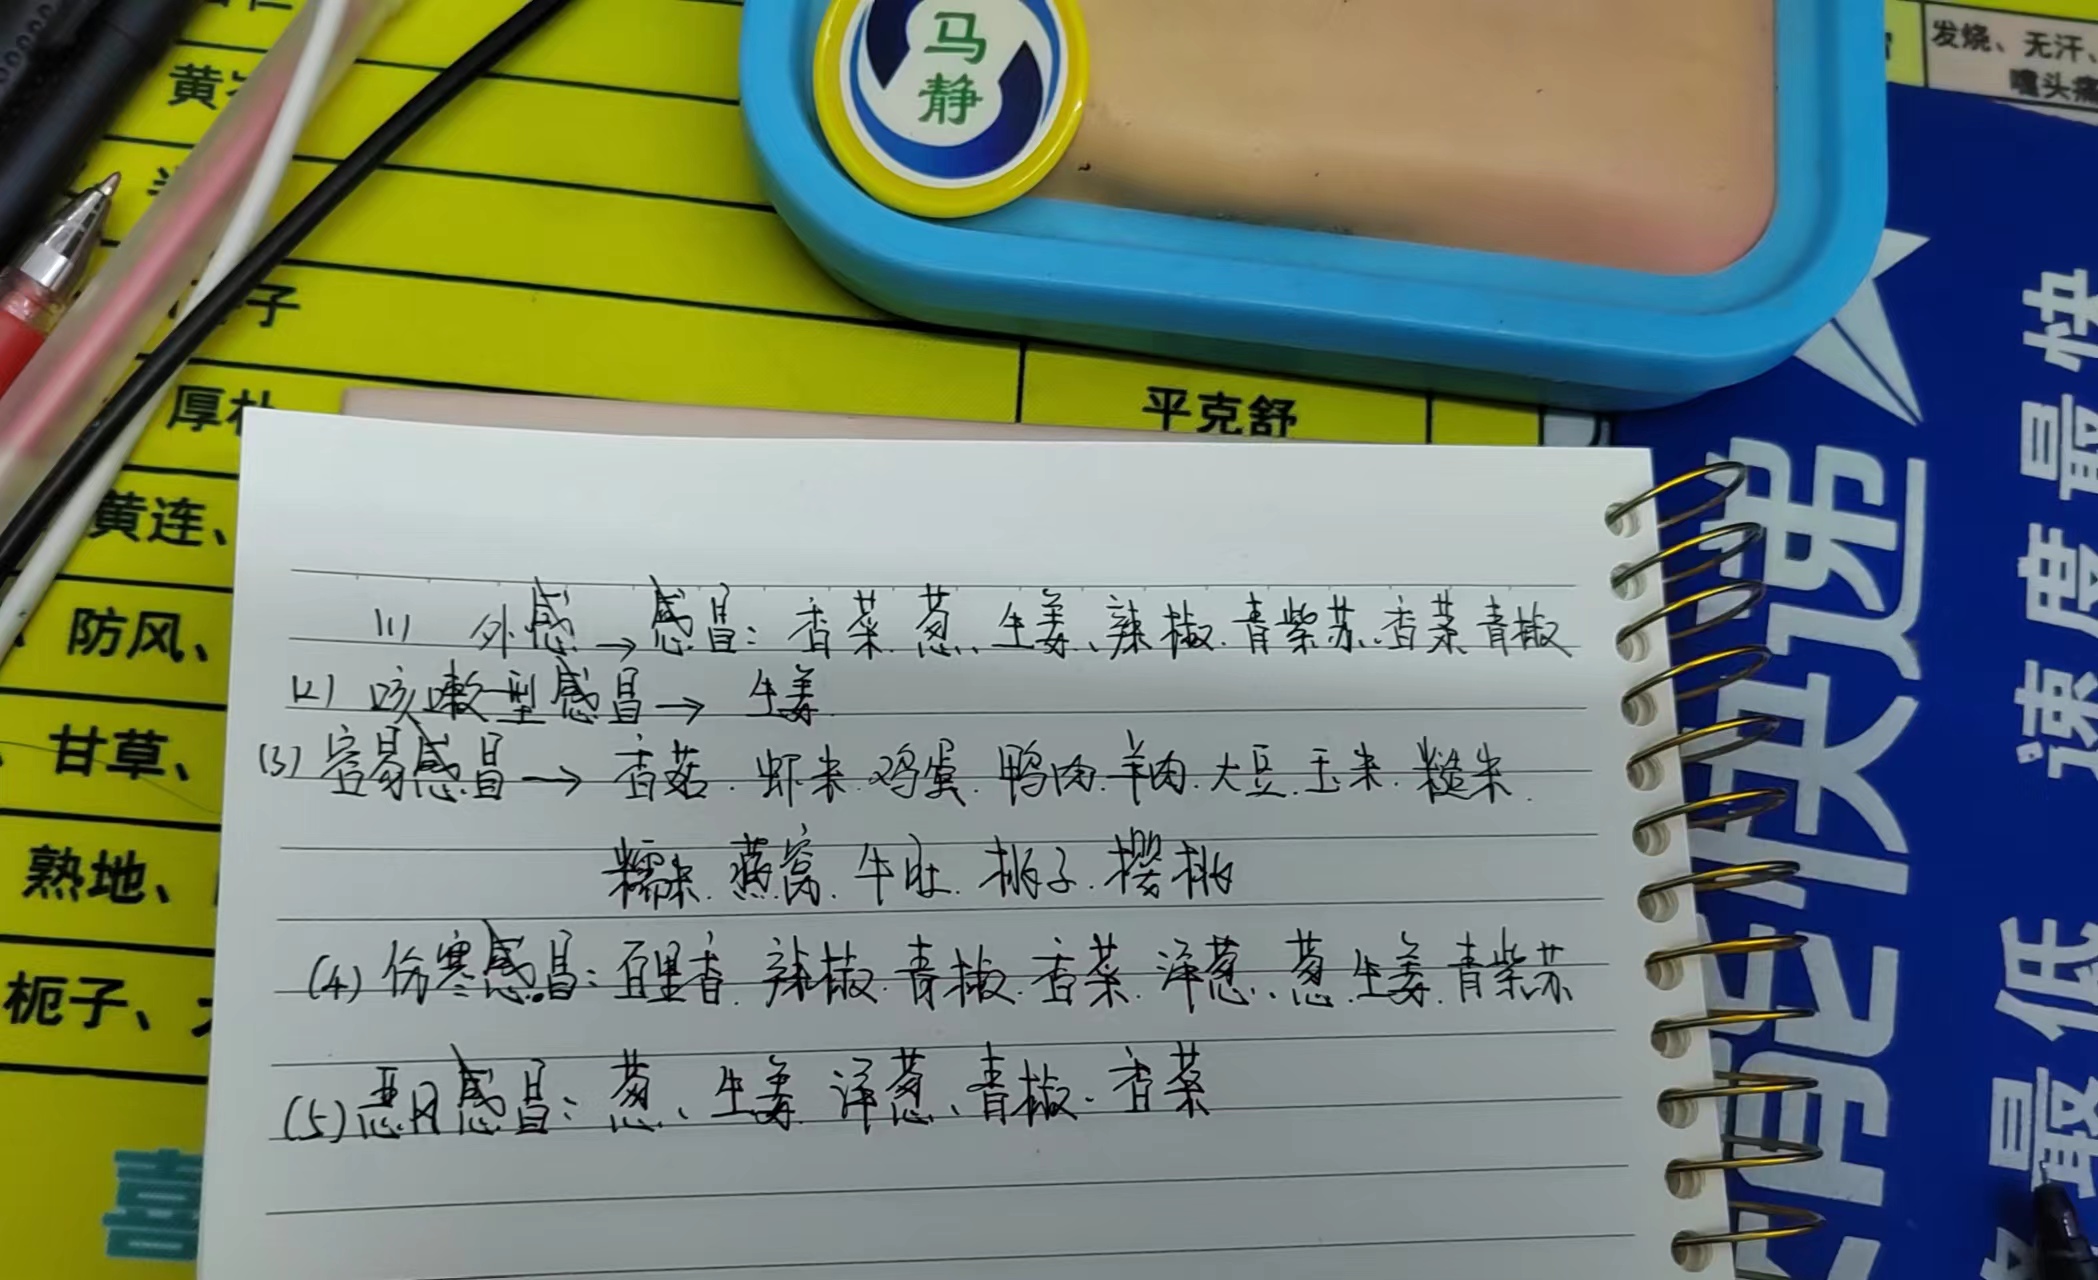 马
静
发烧、无汗、
嚏头痛
黄芩
子
厚朴
平克舒
黄连、
防风、
甘草、
熟地、
栀子、大
(1) 外感→感冒：香菜.葱、生姜、辣椒.青紫苏.香菜.青椒
(2) 咳嗽型感冒→ 生姜
(3) 容易感冒→ 香菇.虾米.鸡蛋.鸭肉.羊肉.大豆.玉米.糙米.
糯米.燕窝.牛肚.桃子.樱桃
(4) 伤寒感冒：百里香.辣椒.青椒.香菜.洋葱、葱.生姜.青紫苏
(5) 恶风感冒：葱、生姜 洋葱、青椒.香菜
喜
能快速
速度最快
最低